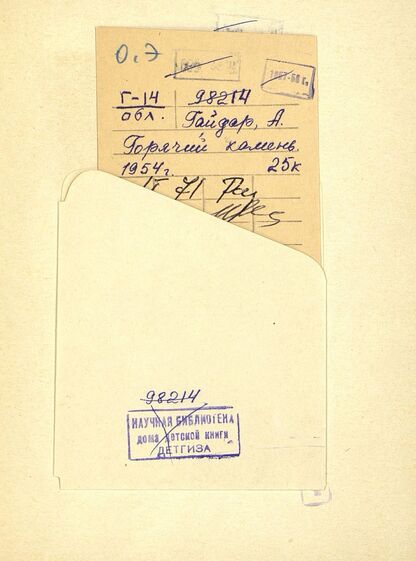 О.Э
Г-14 98214
обл. Гайдар, А.
Горячий камень.
1954г. 25к
71
98214
НАУЧНАЯ БИБЛИОТЕКА
дома детской книги
ДЕТГИЗА